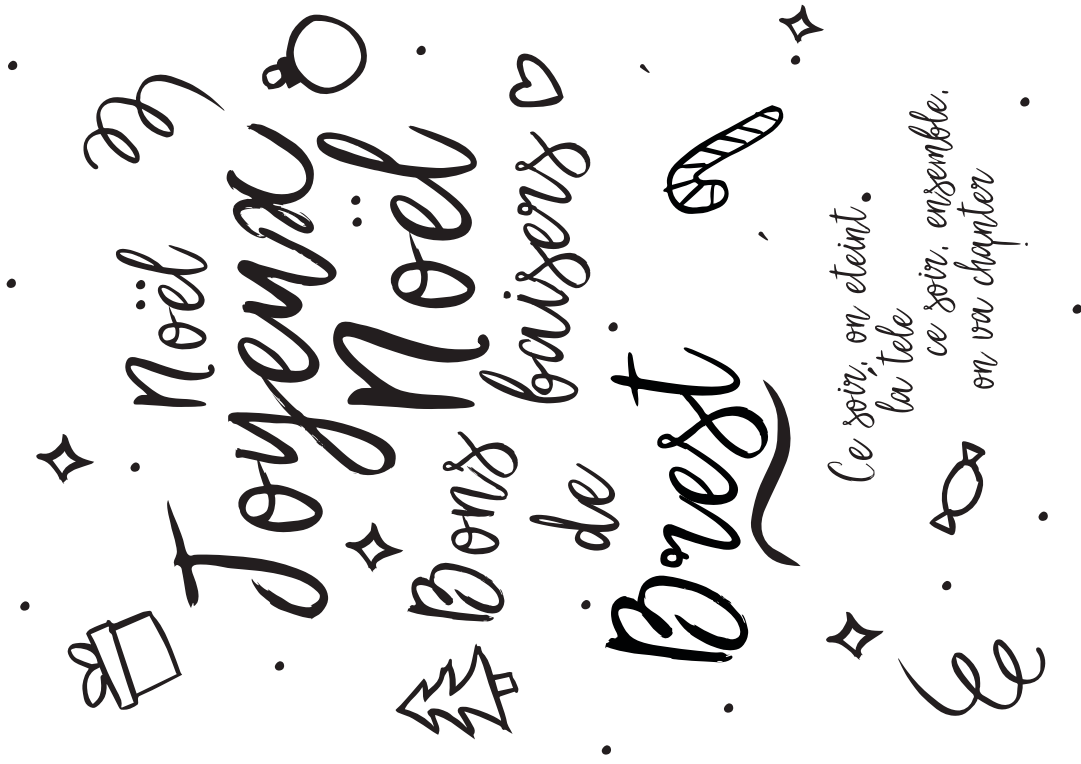 Noël
Joyeux
Noël
Bons baisers
de
Brest
Ce soir, on eteint.
la tele
ce soir, ensemble,
on va chanter